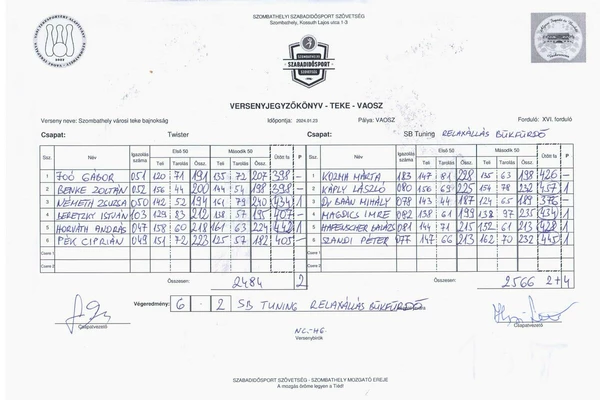 SZOMBATHELYI SZABADIDŐSPORT SZÖVETSÉG
Szombathely, Kossuth Lajos utca 1-3
SZOMBATHELYI
SZABADIDŐSPORT
SZÖVETSÉG
VERSENYJEGYZŐKÖNYV - TEKE - VAOSZ
Verseny neve: Szombathely városi teke bajnokság Időpontja: 2024.01.23 Pálya: VAOSZ Forduló: XVI. forduló
Csapat: Twister Csapat: SB Tuning RELAXÁLLÁS BÜKFÜRDŐ
Ssz. Név Igazolás száma Első 50 Második 50 Ütött fa P Ssz. Név Igazolás száma Első 50 Második 50 Ütött fa P
Teli Tarolás Össz. Teli Tarolás Össz. Teli Tarolás Össz. Teli Tarolás Össz.
1 JOÓ GÁBOR 051 120 71 191 135 72 207 398 – 1 KOZMA MÁRTA 183 147 81 228 135 63 198 426 –
2 BENKE ZOLTÁN 052 156 44 200 144 54 198 398 – 2 KÁPLY LÁSZLÓ 080 156 69 225 154 78 232 457 1
3 NÉMETH ZSUZSA 050 142 52 194 161 79 240 434 1 3 Dr BAÁN MIHÁLY 078 143 44 187 124 65 189 376 –
4 BERETZKY ISTVÁN 103 129 83 212 138 57 195 407 – 4 MAGDICS IMRE 082 138 61 199 138 97 235 434 1
5 HORVÁTH ANDRÁS 047 158 60 218 161 63 224 442 1 5 HAFENSCHER BALÁZS 081 144 71 215 152 61 213 428 1
6 PÉK CIPRIÁN 049 151 72 223 125 57 182 405 – 6 SZANDI PÉTER 077 147 66 213 162 70 232 445 1
Csere 1 Csere 1
Csere 2 Csere 2
Összesen: 2484 2 Összesen: 2566 2+4
Végeredmény: 6 - 2 SB TUNING RELAXÁLLÁS BÜKFÜRDŐ
Csapatvezető Csapatvezető
NC.-HG.
Versenybírók
SZABADIDŐSPORT SZÖVETSÉG - SZOMBATHELY MOZGATÓ EREJE
A mozgás öröme legyen a Tiéd!